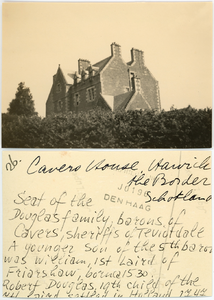 26. Cavers House, Hawick
the Border
Schotland
DEN HAAG
Seat of the
Douglas family, barons of
Cavers, sheriffs of Teviotdale
A younger son of the 5th baron
was William, 1st Laird of
Friarshaw, born ± 1530.
Robert Douglas, 19th child of the
Laird settled in Holland